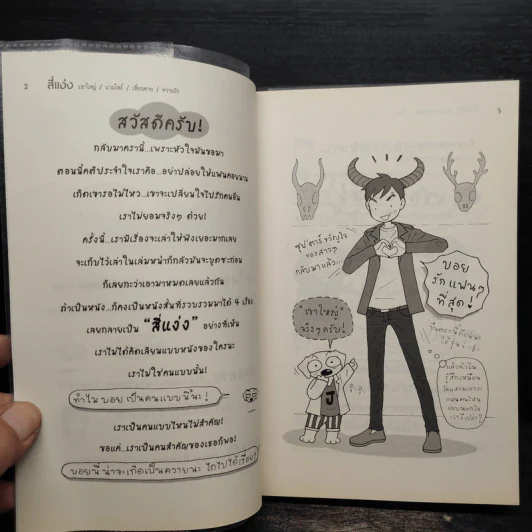 2 สี่แง่ง เขาใหญ่ / แวมไพร์ / เชียงคาน / ความลับ
สวัสดีครับ!
กลับมาครานี้...เพราะหัวใจมันขอมา
ตอนนี้คติประจำใจเราคือ...อย่าปล่อยให้แฟนคอยนาน
เกิดเขารอไม่ไหว...เขาจะเปลี่ยนใจไปรักคนอื่น
เราไม่ยอมจริงๆ ด้วย!
ครั้งนี้...เรามีเรื่องจะเล่าให้ฟังเยอะมากเลย
จะเก็บไว้เล่าในเล่มหน้าก็กลัวมันจะบูดซะก่อน
ก็เลยกะว่าเอามาหมดเลยแล้วกัน
ถ้าเป็นหนัง...ก็คงเป็นหนังสั้นที่รวบรวมมาได้ 4 เรื่อง
เลยกลายเป็น “สี่แง่ง” อย่างที่เห็น
เราไม่ได้คิดเลียนแบบหนังของใครนะ
เราไม่ใช่คนแบบนั้น!
ทำไม บอย เป็นคนแบบนี้นะ!
เราเป็นคนแบบไหนไม่สำคัญ!
ขอแค่...เราเป็นคนสำคัญของเธอก็พอ!
บอยนี่น่าจะเกิดเป็นควายนะ ไถไปได้เรื่อยๆ
ซุปตาร์ขวัญใจ
ของสาวๆ
กลับมาแล้ว...
บอย
รักแฟนๆ
ที่สุด!
"เขาใหญ่"
จริงๆ ครับ!
J
แล้วทำไม
รู้สึกเหมือน